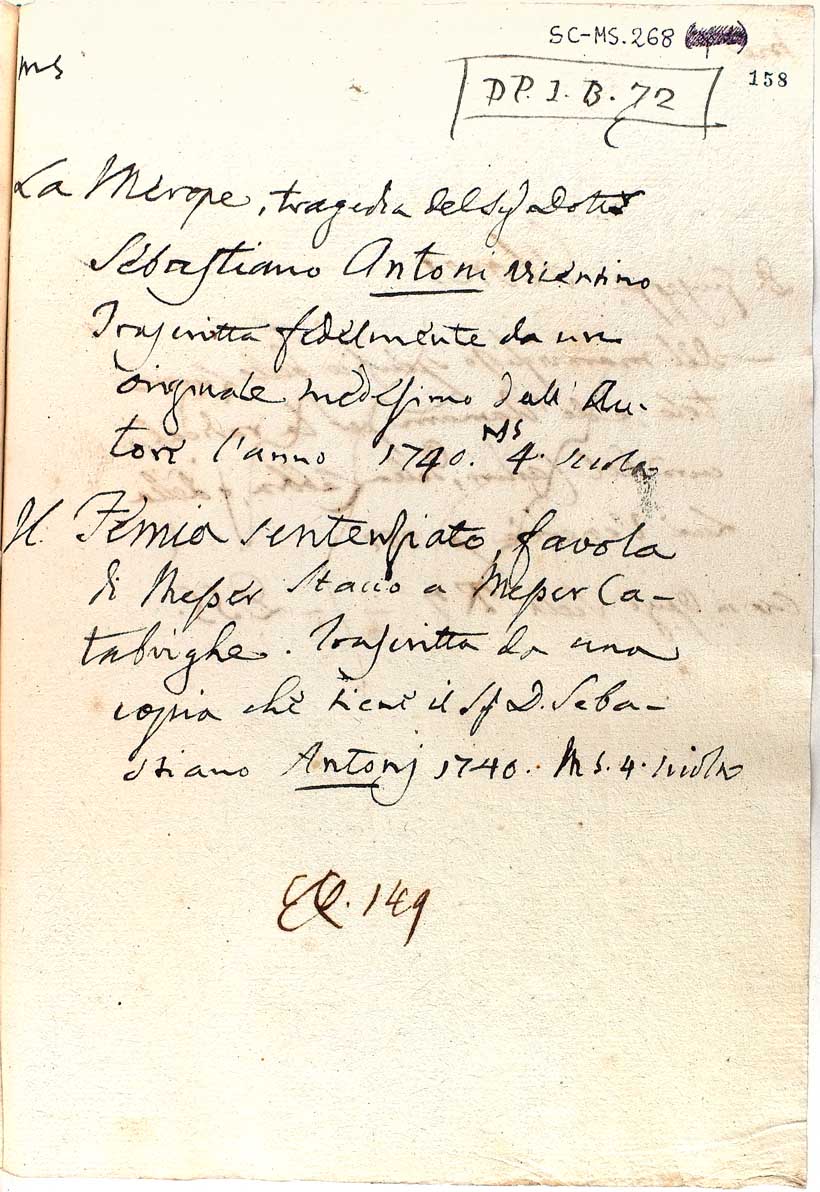 SC-MS.268
158
ms
DP. I. B. 72
La Merope, tragedia del Sig Dottr
Sebastiano Antoni vicentino
Trascritta fedelmente da un
originale medesimo dell' Au-
tore l'anno 1740. MS 4.
Il Femia sentenziato, favola
di Messer Stacio a Messer Ca-
tabrighe. Trascritta da una
copia che tiene il Sig D. Seba-
stiano Antonj 1740. Ms. 4.
149